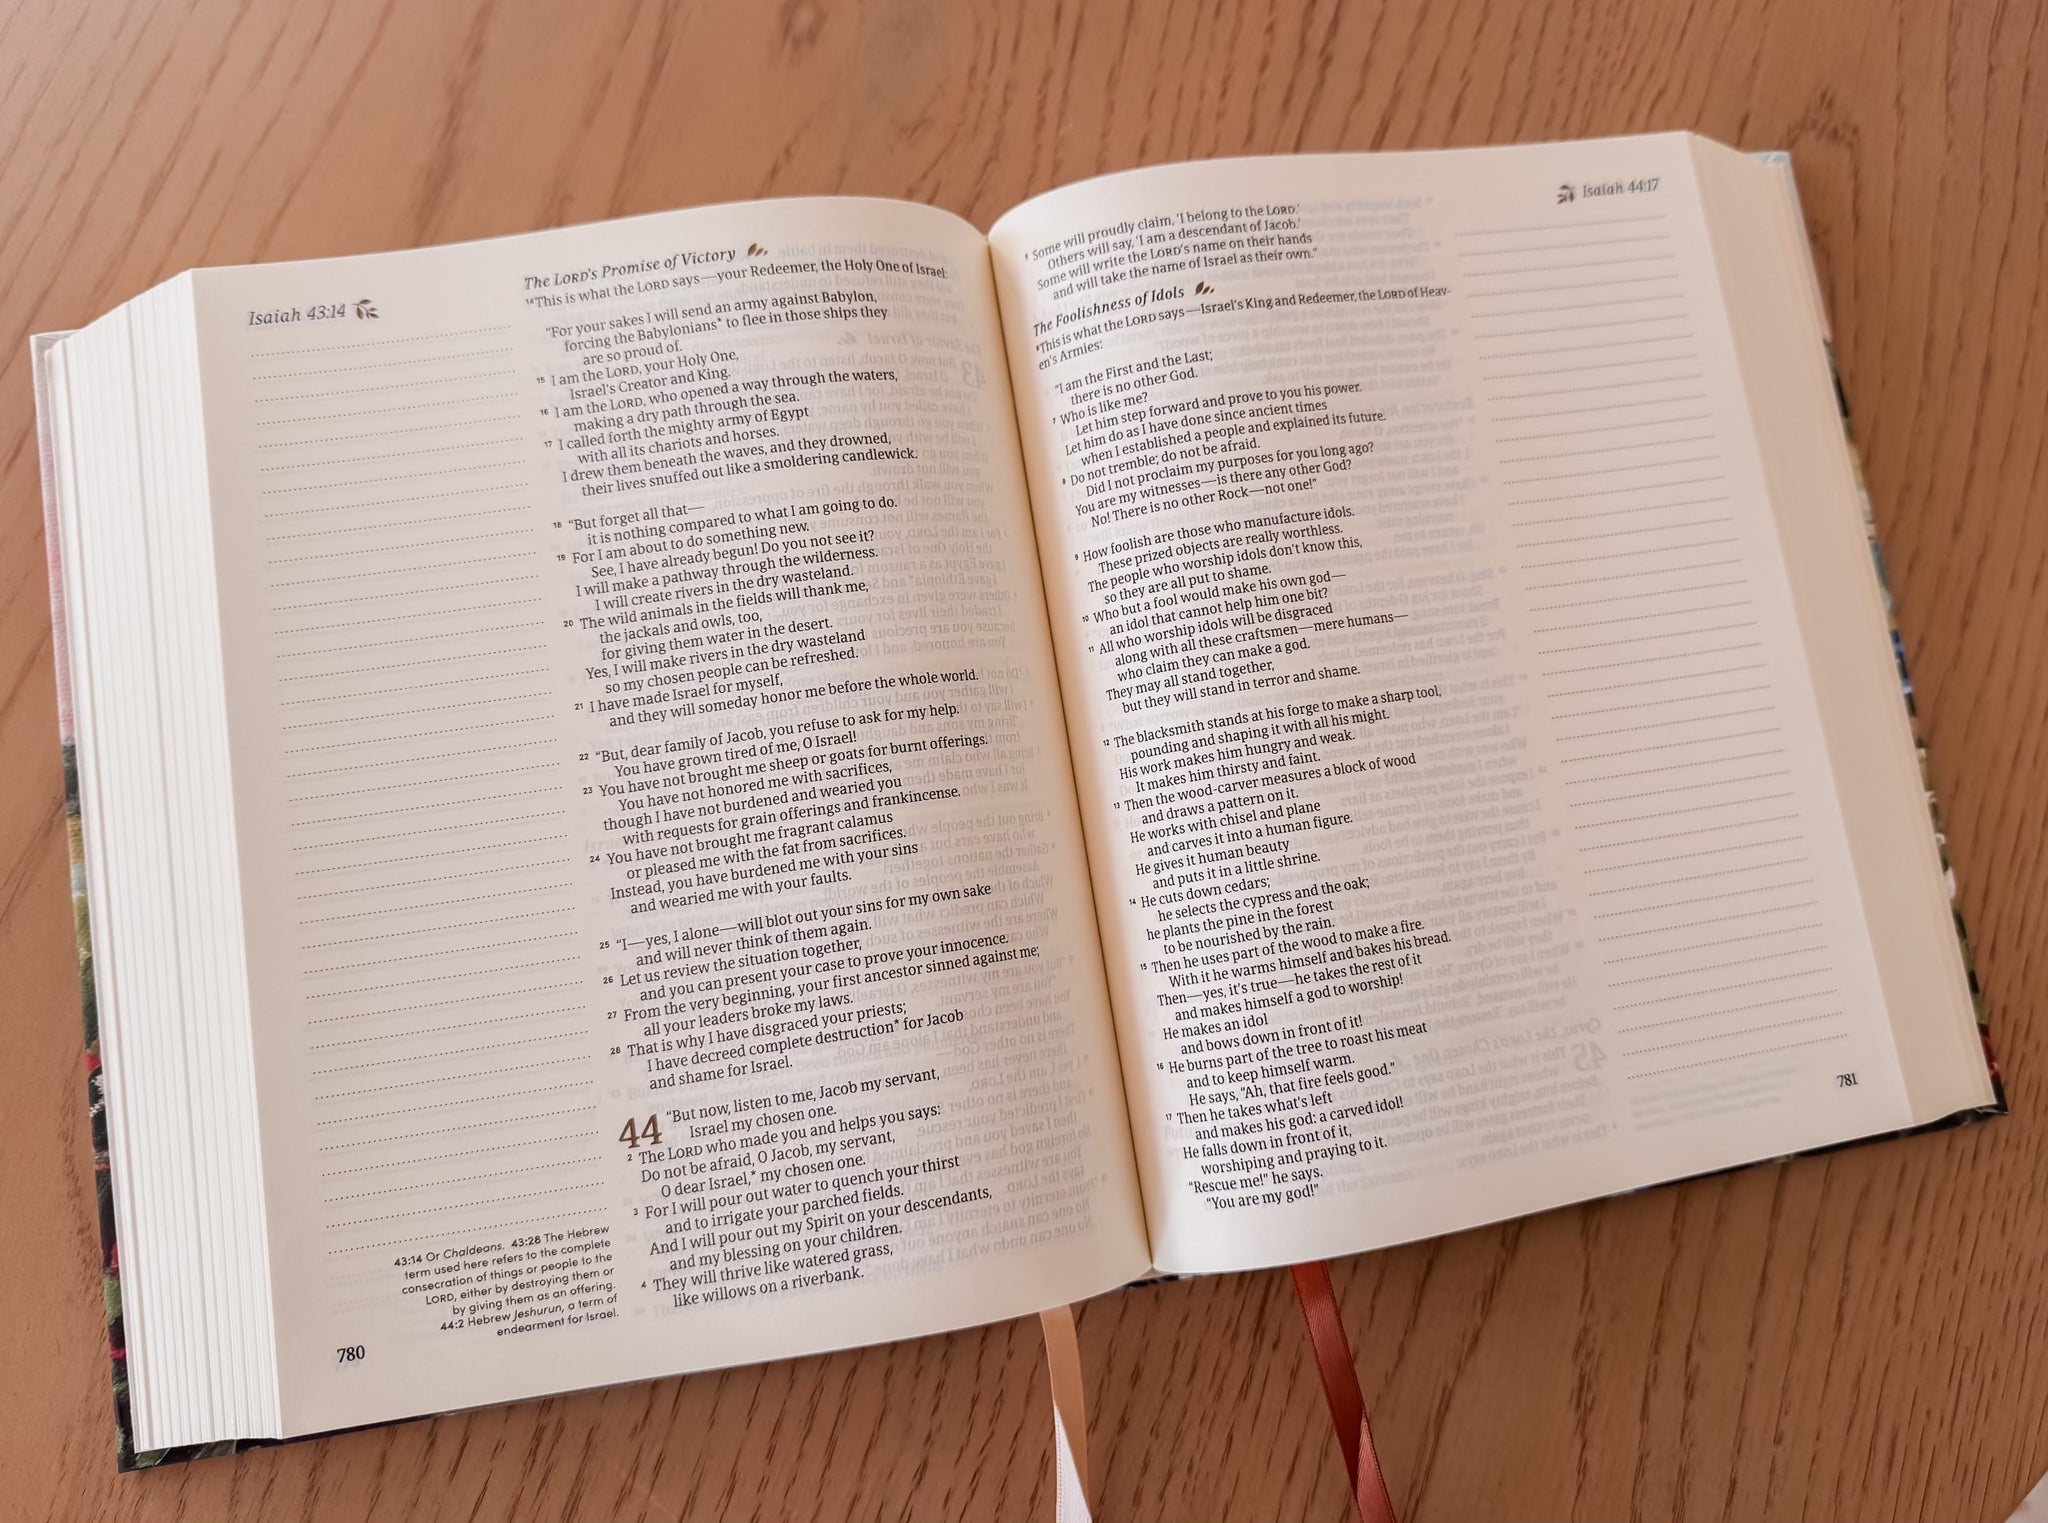 Isaiah 43:14
The LORD's Promise of Victory
14 This is what the LORD says—your Redeemer, the Holy One of Israel:
“For your sakes I will send an army against Babylon,
forcing the Babylonians* to flee in those ships they
are so proud of.
15 I am the LORD, your Holy One,
Israel's Creator and King.
16 I am the LORD, who opened a way through the waters,
making a dry path through the sea.
17 I called forth the mighty army of Egypt
with all its chariots and horses.
I drew them beneath the waves, and they drowned,
their lives snuffed out like a smoldering candlewick.
18 “But forget all that—
it is nothing compared to what I am going to do.
19 For I am about to do something new.
See, I have already begun! Do you not see it?
I will make a pathway through the wilderness.
I will create rivers in the dry wasteland.
20 The wild animals in the fields will thank me,
the jackals and owls, too,
for giving them water in the desert.
Yes, I will make rivers in the dry wasteland
so my chosen people can be refreshed.
21 I have made Israel for myself,
and they will someday honor me before the whole world.
22 “But, dear family of Jacob, you refuse to ask for my help.
You have grown tired of me, O Israel!
23 You have not brought me sheep or goats for burnt offerings.
You have not honored me with sacrifices,
though I have not burdened and wearied you
with requests for grain offerings and frankincense.
24 You have not brought me fragrant calamus
or pleased me with the fat from sacrifices.
Instead, you have burdened me with your sins
and wearied me with your faults.
25 “I—yes, I alone—will blot out your sins for my own sake
and will never think of them again.
26 Let us review the situation together,
and you can present your case to prove your innocence.
27 From the very beginning, your first ancestor sinned against me;
all your leaders broke my laws.
28 That is why I have disgraced your priests;
I have decreed complete destruction* for Jacob
and shame for Israel.
44 “But now, listen to me, Jacob my servant,
Israel my chosen one.
2 The LORD who made you and helps you says:
Do not be afraid, O Jacob, my servant,
O dear Israel,* my chosen one.
3 For I will pour out water to quench your thirst
and to irrigate your parched fields.
And I will pour out my Spirit on your descendants,
and my blessing on your children.
4 They will thrive like watered grass,
like willows on a riverbank.
43:14 Or Chaldeans. 43:28 The Hebrew
term used here refers to the complete
consecration of things or people to the
LORD, either by destroying them or
by giving them as an offering.
44:2 Hebrew Jeshurun, a term of
endearment for Israel.
780
Isaiah 44:17
5 Some will proudly claim, ‘I belong to the LORD.’
Others will say, ‘I am a descendant of Jacob.’
Some will write the LORD's name on their hands
and will take the name of Israel as their own.”
The Foolishness of Idols
6 This is what the LORD says—Israel's King and Redeemer, the LORD of Heav-
en's Armies:
“I am the First and the Last;
there is no other God.
7 Who is like me?
Let him step forward and prove to you his power.
Let him do as I have done since ancient times
when I established a people and explained its future.
8 Do not tremble; do not be afraid.
Did I not proclaim my purposes for you long ago?
You are my witnesses—is there any other God?
No! There is no other Rock—not one!”
9 How foolish are those who manufacture idols.
These prized objects are really worthless.
The people who worship idols don't know this,
so they are all put to shame.
10 Who but a fool would make his own god—
an idol that cannot help him one bit?
11 All who worship idols will be disgraced
along with all these craftsmen—mere humans—
who claim they can make a god.
They may all stand together,
but they will stand in terror and shame.
12 The blacksmith stands at his forge to make a sharp tool,
pounding and shaping it with all his might.
His work makes him hungry and weak.
It makes him thirsty and faint.
13 Then the wood-carver measures a block of wood
and draws a pattern on it.
He works with chisel and plane
and carves it into a human figure.
He gives it human beauty
and puts it in a little shrine.
14 He cuts down cedars;
he selects the cypress and the oak;
he plants the pine in the forest
to be nourished by the rain.
15 Then he uses part of the wood to make a fire.
With it he warms himself and bakes his bread.
Then—yes, it's true—he takes the rest of it
and makes himself a god to worship!
He makes an idol
and bows down in front of it!
16 He burns part of the tree to roast his meat
and to keep himself warm.
He says, “Ah, that fire feels good.”
17 Then he takes what's left
and makes his god: a carved idol!
He falls down in front of it,
worshiping and praying to it.
“Rescue me!” he says.
“You are my god!”
781